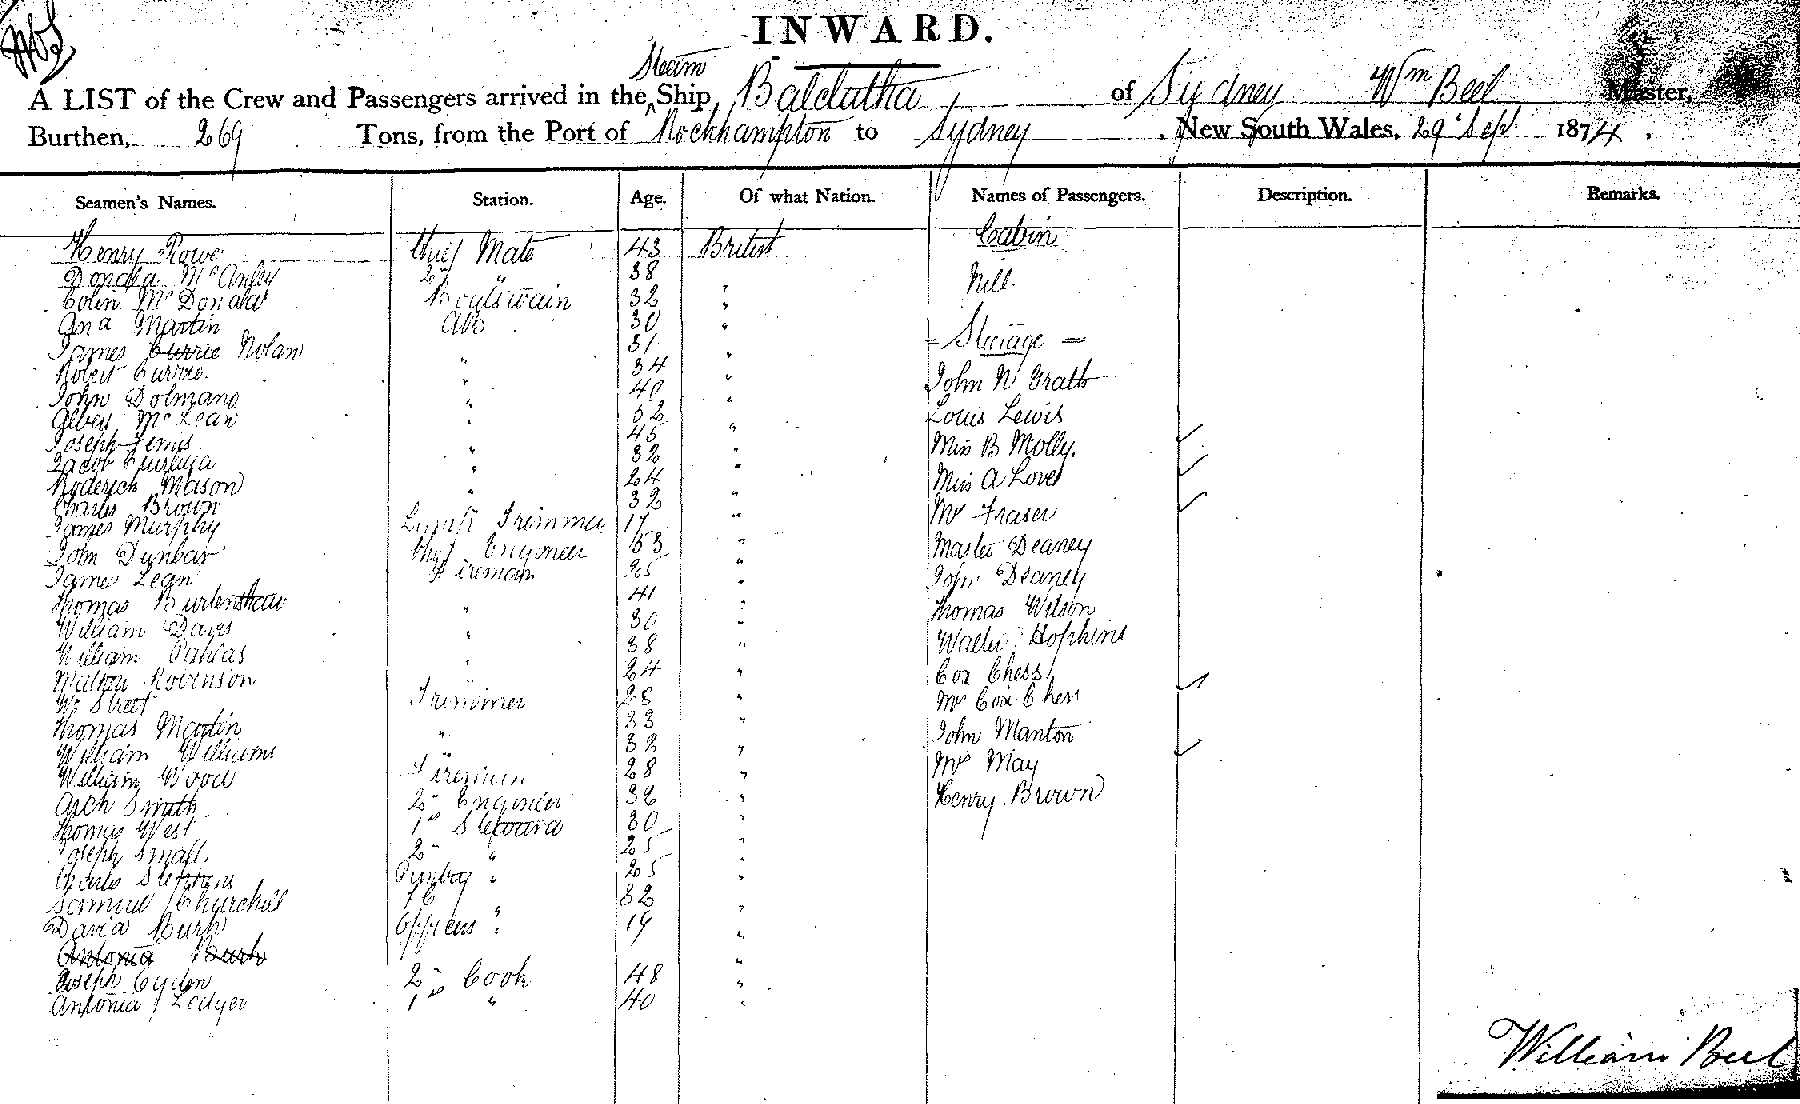 INWARD.
Steam
A LIST of the Crew and Passengers arrived in the Ship, Balclutha of Sydney Wm Beel Master,
Burthen, 269 Tons, from the Port of Rockhampton to Sydney, New South Wales, 29 Sept 1874.
Seamen's Names. Station. Age. Of what Nation. Names of Passengers. Description. Remarks.
Henry Rowe Chief Mate 43 British Cabin
Donald McAuley 2nd " 38 Nill.
Colin McDonald Boatswain 32 "
Martin AB 30 "
James Currie Nolan " 31 " Steerage
Robert Currie. " 34 " John
John " 40 " Louis Lewis
McLean " 52 " Miss B Molly.
Joseph " 45 " Miss A Love
Jacob " 32 "
Roderick Mason " 24 " Fraser
Charles Brown " 32 "
James Murphy Trimmer 17 " Master Deaney
John Dunbar Chief Engineer 53 " John Deaney
James Lean Fireman 25 "
Thomas Burtenshaw " 41 " Thomas Wilson
William Davis " 30 " Walter Hopkins
William " 38 " Cox Chess
Robinson " 24 " Cox Chess
Wm Street Trimmer 28 " John Manton
Thomas Martin " 33 " May
William Williams 32 " Henry Brown
William Wood Fireman 28 "
Arch Smith 2nd Engineer 32 "
Thomas West 1st Steward 30 "
Joseph Small. 2nd " 25 "
Charles Stephens Pantry " 25 "
Samuel Churchill F C 32 "
David Burk Officers " 19 "
Antonia Burk "
Joseph 2nd Cook 48 "
Antonia 1st " 40 "
William Beel